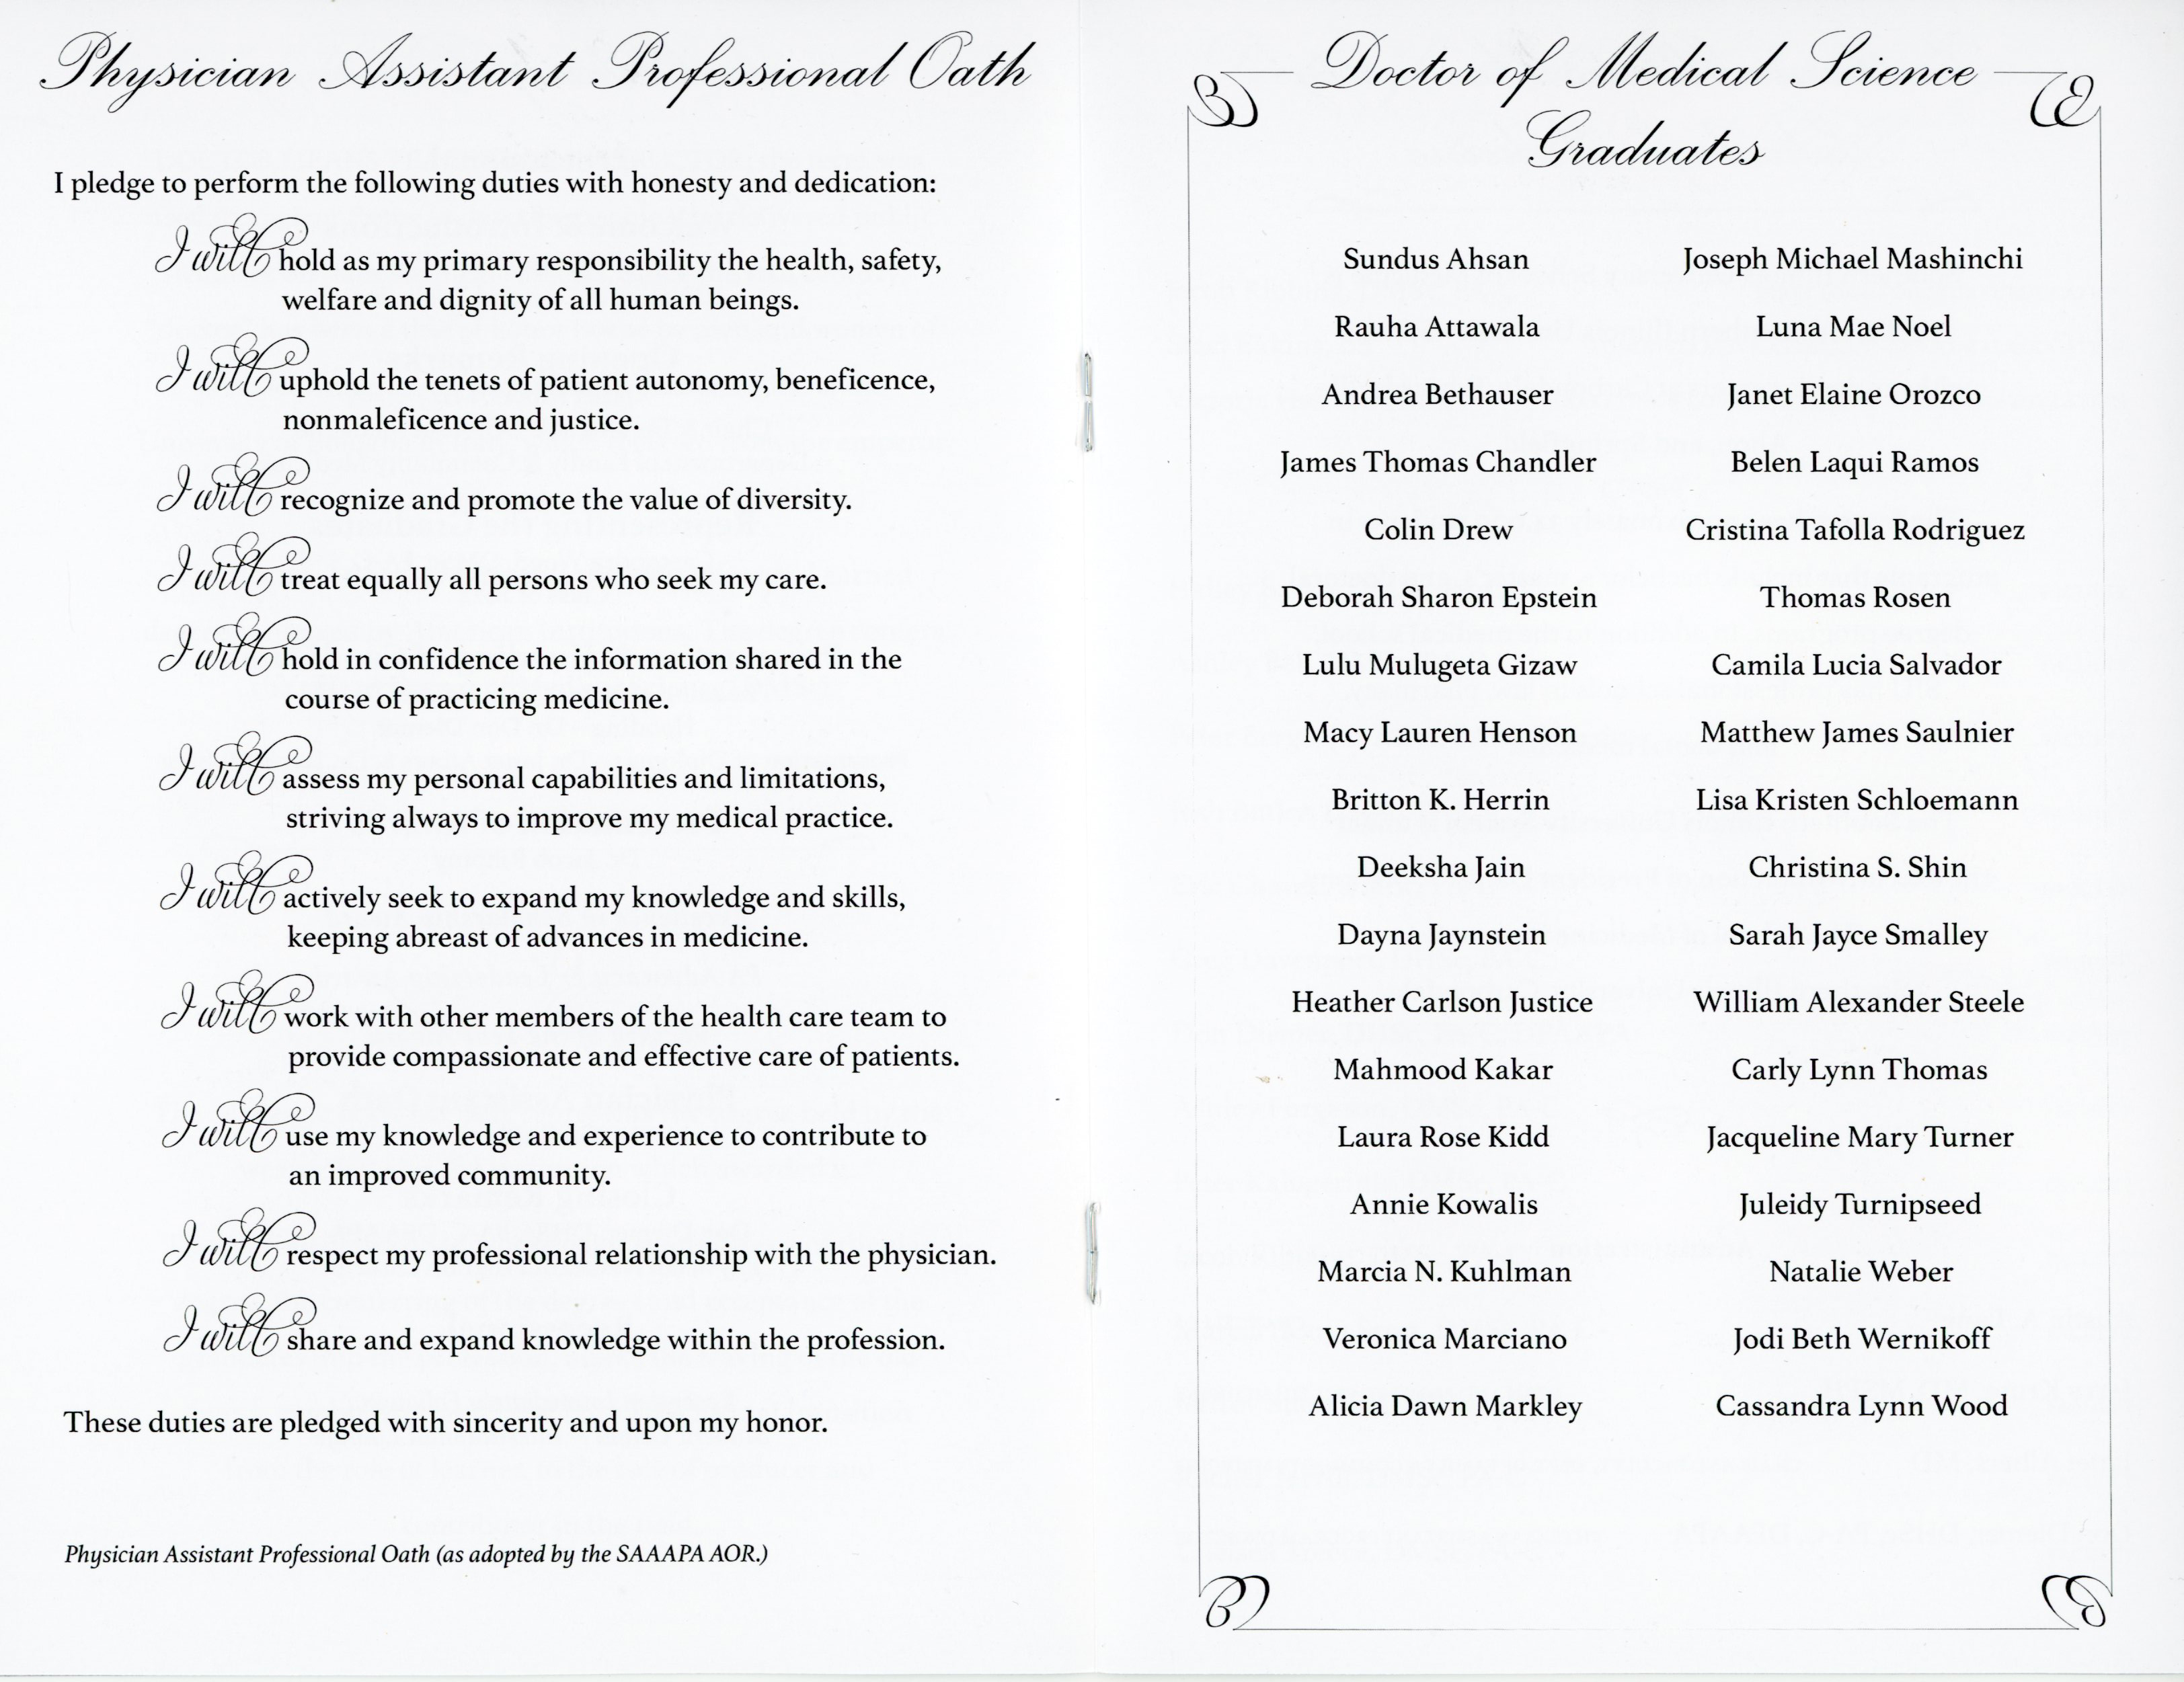 Physician Assistant Professional Oath
I pledge to perform the following duties with honesty and dedication:
I will hold as my primary responsibility the health, safety,
welfare and dignity of all human beings.
I will uphold the tenets of patient autonomy, beneficence,
nonmaleficence and justice.
I will recognize and promote the value of diversity.
I will treat equally all persons who seek my care.
I will hold in confidence the information shared in the
course of practicing medicine.
I will assess my personal capabilities and limitations,
striving always to improve my medical practice.
I will actively seek to expand my knowledge and skills,
keeping abreast of advances in medicine.
I will work with other members of the health care team to
provide compassionate and effective care of patients.
I will use my knowledge and experience to contribute to
an improved community.
I will respect my professional relationship with the physician.
I will share and expand knowledge within the profession.
These duties are pledged with sincerity and upon my honor.
Physician Assistant Professional Oath (as adopted by the SAAAPA AOR.)
Doctor of Medical Science
Graduates
Sundus Ahsan
Rauha Attawala
Andrea Bethauser
James Thomas Chandler
Colin Drew
Deborah Sharon Epstein
Lulu Mulugeta Gizaw
Macy Lauren Henson
Britton K. Herrin
Deeksha Jain
Dayna Jaynstein
Heather Carlson Justice
Mahmood Kakar
Laura Rose Kidd
Annie Kowalis
Marcia N. Kuhlman
Veronica Marciano
Alicia Dawn Markley
Joseph Michael Mashinchi
Luna Mae Noel
Janet Elaine Orozco
Belen Laqui Ramos
Cristina Tafolla Rodriguez
Thomas Rosen
Camila Lucia Salvador
Matthew James Saulnier
Lisa Kristen Schloemann
Christina S. Shin
Sarah Jayce Smalley
William Alexander Steele
Carly Lynn Thomas
Jacqueline Mary Turner
Juleidy Turnipseed
Natalie Weber
Jodi Beth Wernikoff
Cassandra Lynn Wood